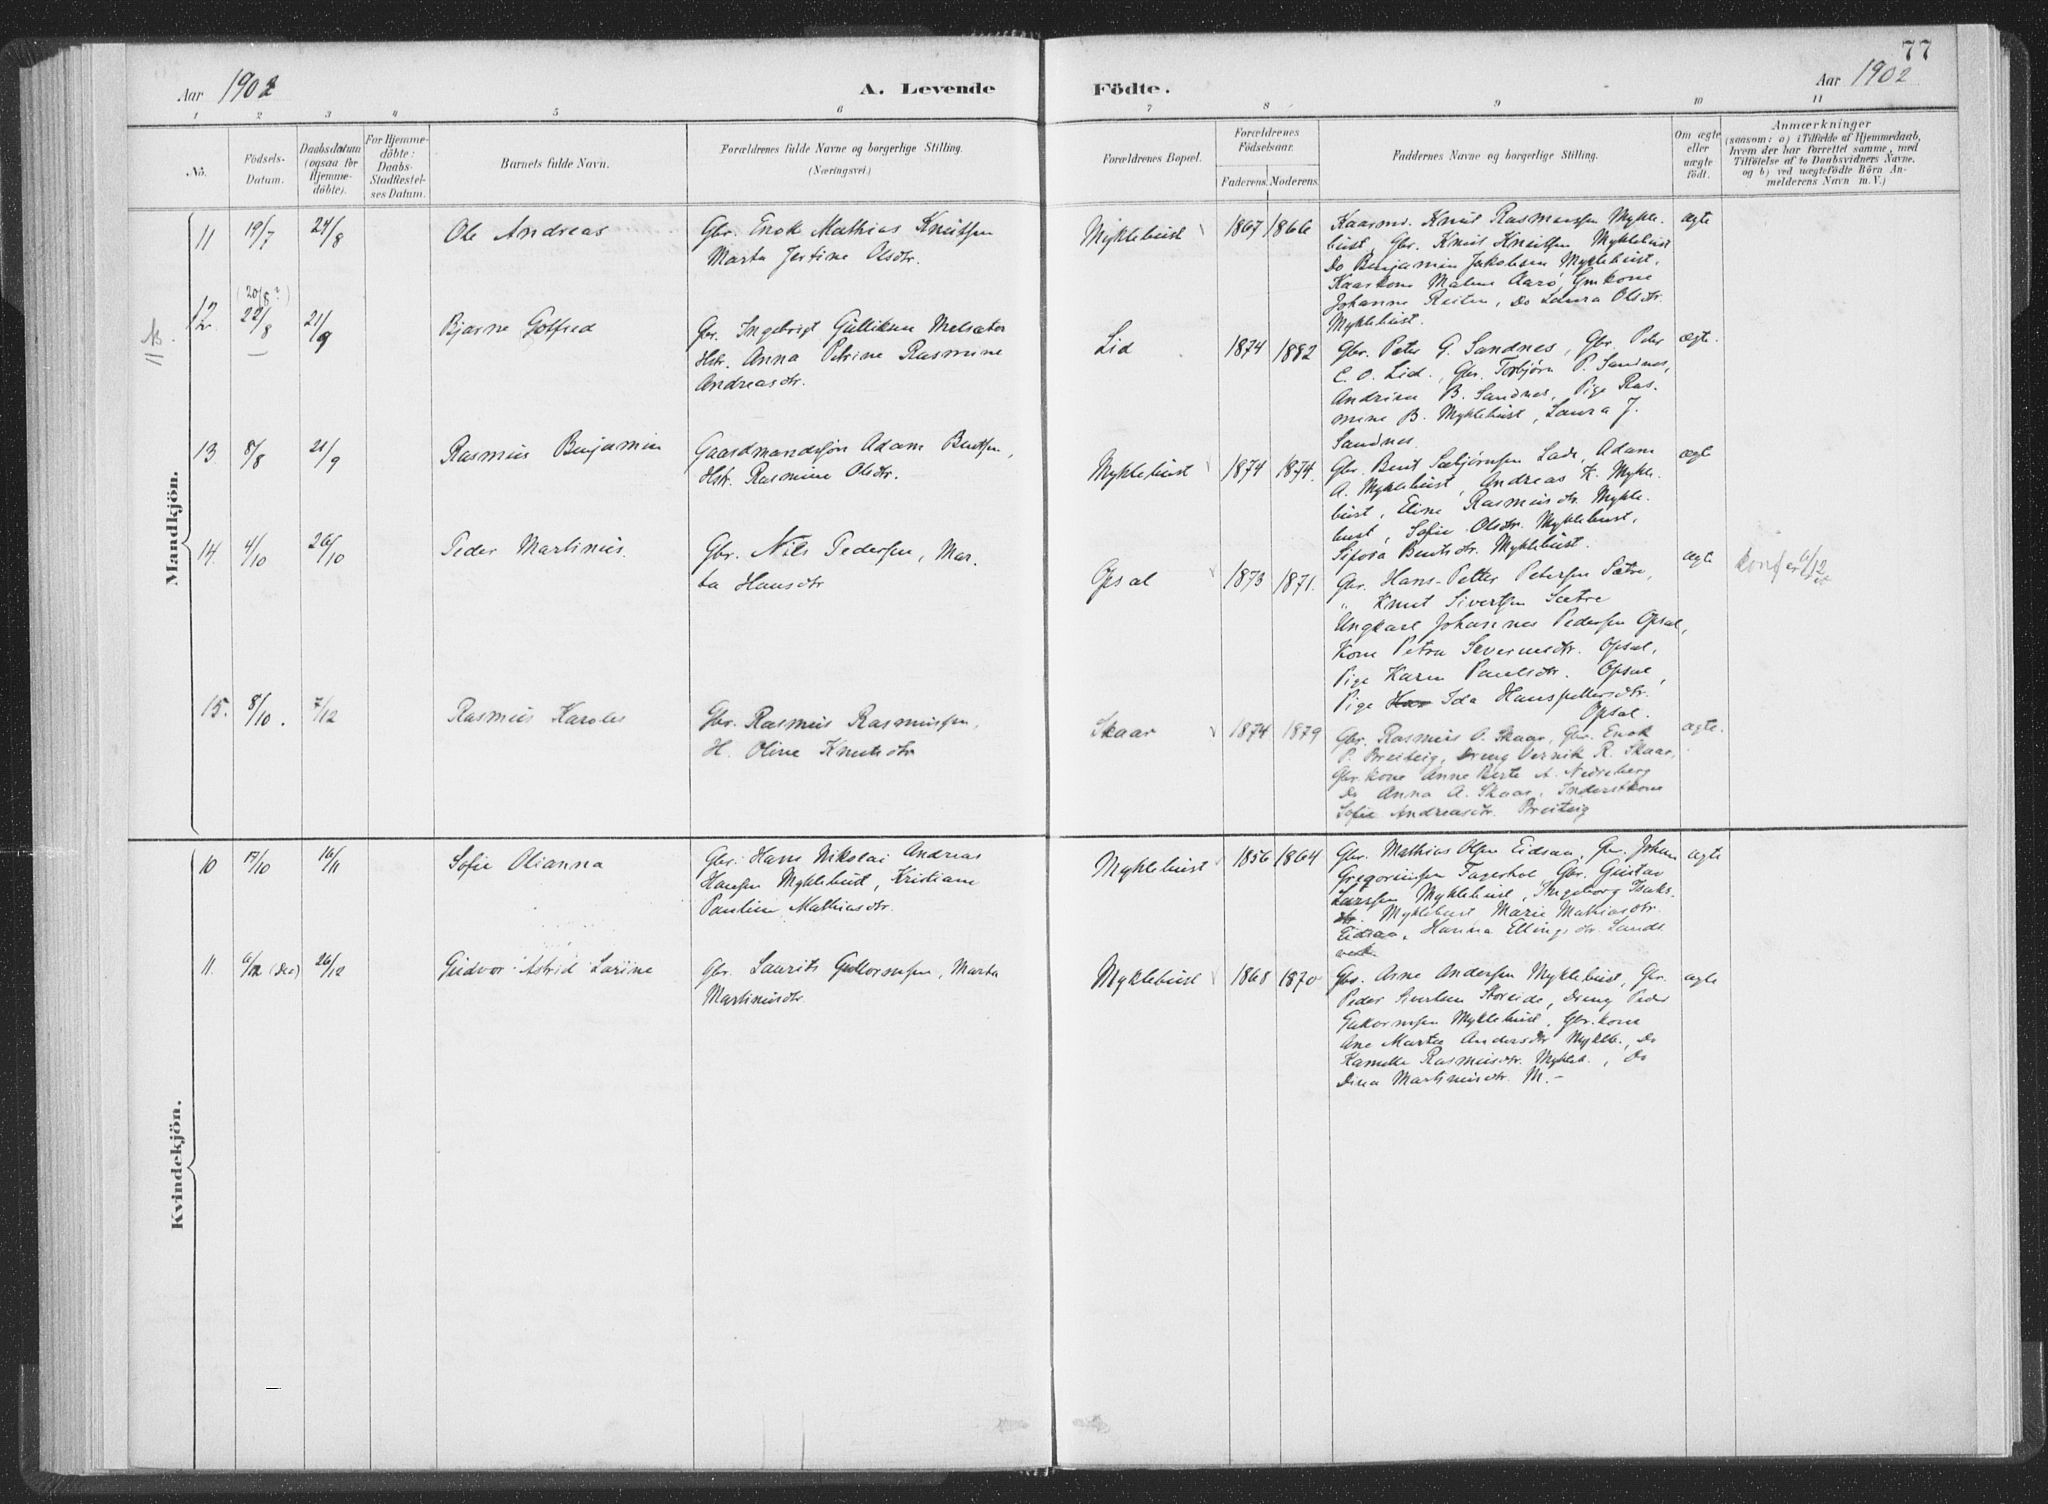 77
Aar 1902
A. Levende
Födte.
Aar 1902
1 2 3 4 5 6 7 8 9 10 11
No.
Födsels-
Datum.
Daabsdatum
(ogsaa for
Hjemme-
döbte).
For Hjemme-
döbte:
Daabs-
Stadfæstel-
ses Datum.
Barnets fulde Navn.
Forældrenes fulde Navne og borgerlige Stilling.
(Næringsvei)
Forældrenes Bopæl.
Forældrenes
Födselsaar.
Faderens. Moderens.
Faddernes Navne og borgerlige Stilling.
Om ægte
eller
uægte
födt.
Anmærkninger
(saasom: a) i Tilfælde af Hjemmedaab,
hvem der har forrettet samme, med
Tilföielse af to Daabsvidners Navne,
og b) ved uægtefödte Börn An-
melderens Navn m. V.)
Mandkjön.
11 19/7 24/8 Ole Andreas
Gbr. Enok Mathias Knutsen
Marta Jertine Olsdtr.
Myklebust 1867 1866
Kaarmd. Knut Rasmussen Mykle-
bust, Gbr. Knut Knutsen Myklebust
Do Benjamin Jakobsen Myklebust,
Kaarkone Malene Aarö, Gmkone
Johanne Reiten, Do Laura Olsdtr.
Myklebust.
ægte
NB.
12. (20/8?) 22/8 21/9 Bjarne Gotfred
Gbr. Ingebrigt Gulliksen Melsæter
Hstr. Anna Petrine Rasmine
Andreasdtr.
Lid 1874 1882
Gbr. Peter G. Sandnes, Gbr. Peter
C. O. Lid, Gbr. Torbjörn P. Sandnes,
Andrine B. Sandnes, Pige Ras-
mine B. Myklebust, Laura J.
Sandnes.
ægte.
13. 8/8 21/9 Rasmus Benjamin
Gaardmandssön Adam Bentsen,
Hstr. Rasmine Olsdtr.
Myklebust 1874 1874.
Gbr. Bent Sæbjörnsen Lade, Adam
A. Myklebust, Andreas K. Mykle-
bust, Eline Rasmusdtr. Mykle-
bust, Sofie Olsdtr. Myklebust,
Sifora Bentsdtr. Myklebust.
ægte
14. 4/10 26/10 Peder Martinus.
Gbr. Nils Pedersen, Mar-
ta Hansdtr
Opsal 1873 1871.
Gbr. Hans-Petter Petersen Sætre,
" Knut Sivertsen Sætre
Ungkarl Johannes Pedersen Opsal,
Kone Petra Severinsdtr. Opsal,
Pige Karen Paulsdtr. Opsal,
Pige Ida Hanspettersdtr.
Opsal.
ægte
15. 8/10. 7/12 Rasmus Karolus
Gbr. Rasmus Rasmussen,
H. Oline Knutsdtr
Skaar 1874 1879
Gbr. Rasmus O. Skaar, Gbr. Enok
P. Breiteig, Dreng Vernik R. Skaar,
Gbr. kone Anne Berte A. Nedreberg
Do Anna A. Skaar, Inderstkone
Sofie Andreasdtr. Breiteig
ægte.
Kvindekjön.
10 17/10 16/11 Sofie Olianna
Gbr. Hans Nikolai Andreas
Hansen Myklebust, Kristiane
Pauline Mathiasdtr.
Myklebust 1856 1864
Gbr. Mathias Olsen Eidsaa, Gbr. Johan
Gregoriussen Fagerhol, Gbr. Gustav
Larssen Myklebust, Ingeborg Isaks-
dtr. Myklebust, Marie Mathiasdtr.
Eidsaa, Hanna Ellingsdtr. Lands-
verk
ægte
11. 6/12 (Des) 26/12 Gudvor Astrid Larine
Gbr. Laurits Guttormsen, Marta
Martinusdtr.
Myklebust 1868 1870
Gbr. Arne Andersen Myklebust, Gbr.
Peder Sivertsen Storeide, Dreng Peder
Guttormsen Myklebust, Gbr.kone
Ane Marta Andersdtr Mykleb., Do
Kamilla Rasmusdtr. Mykleb., Do
Dina Martinusdtr. M.-
ægte